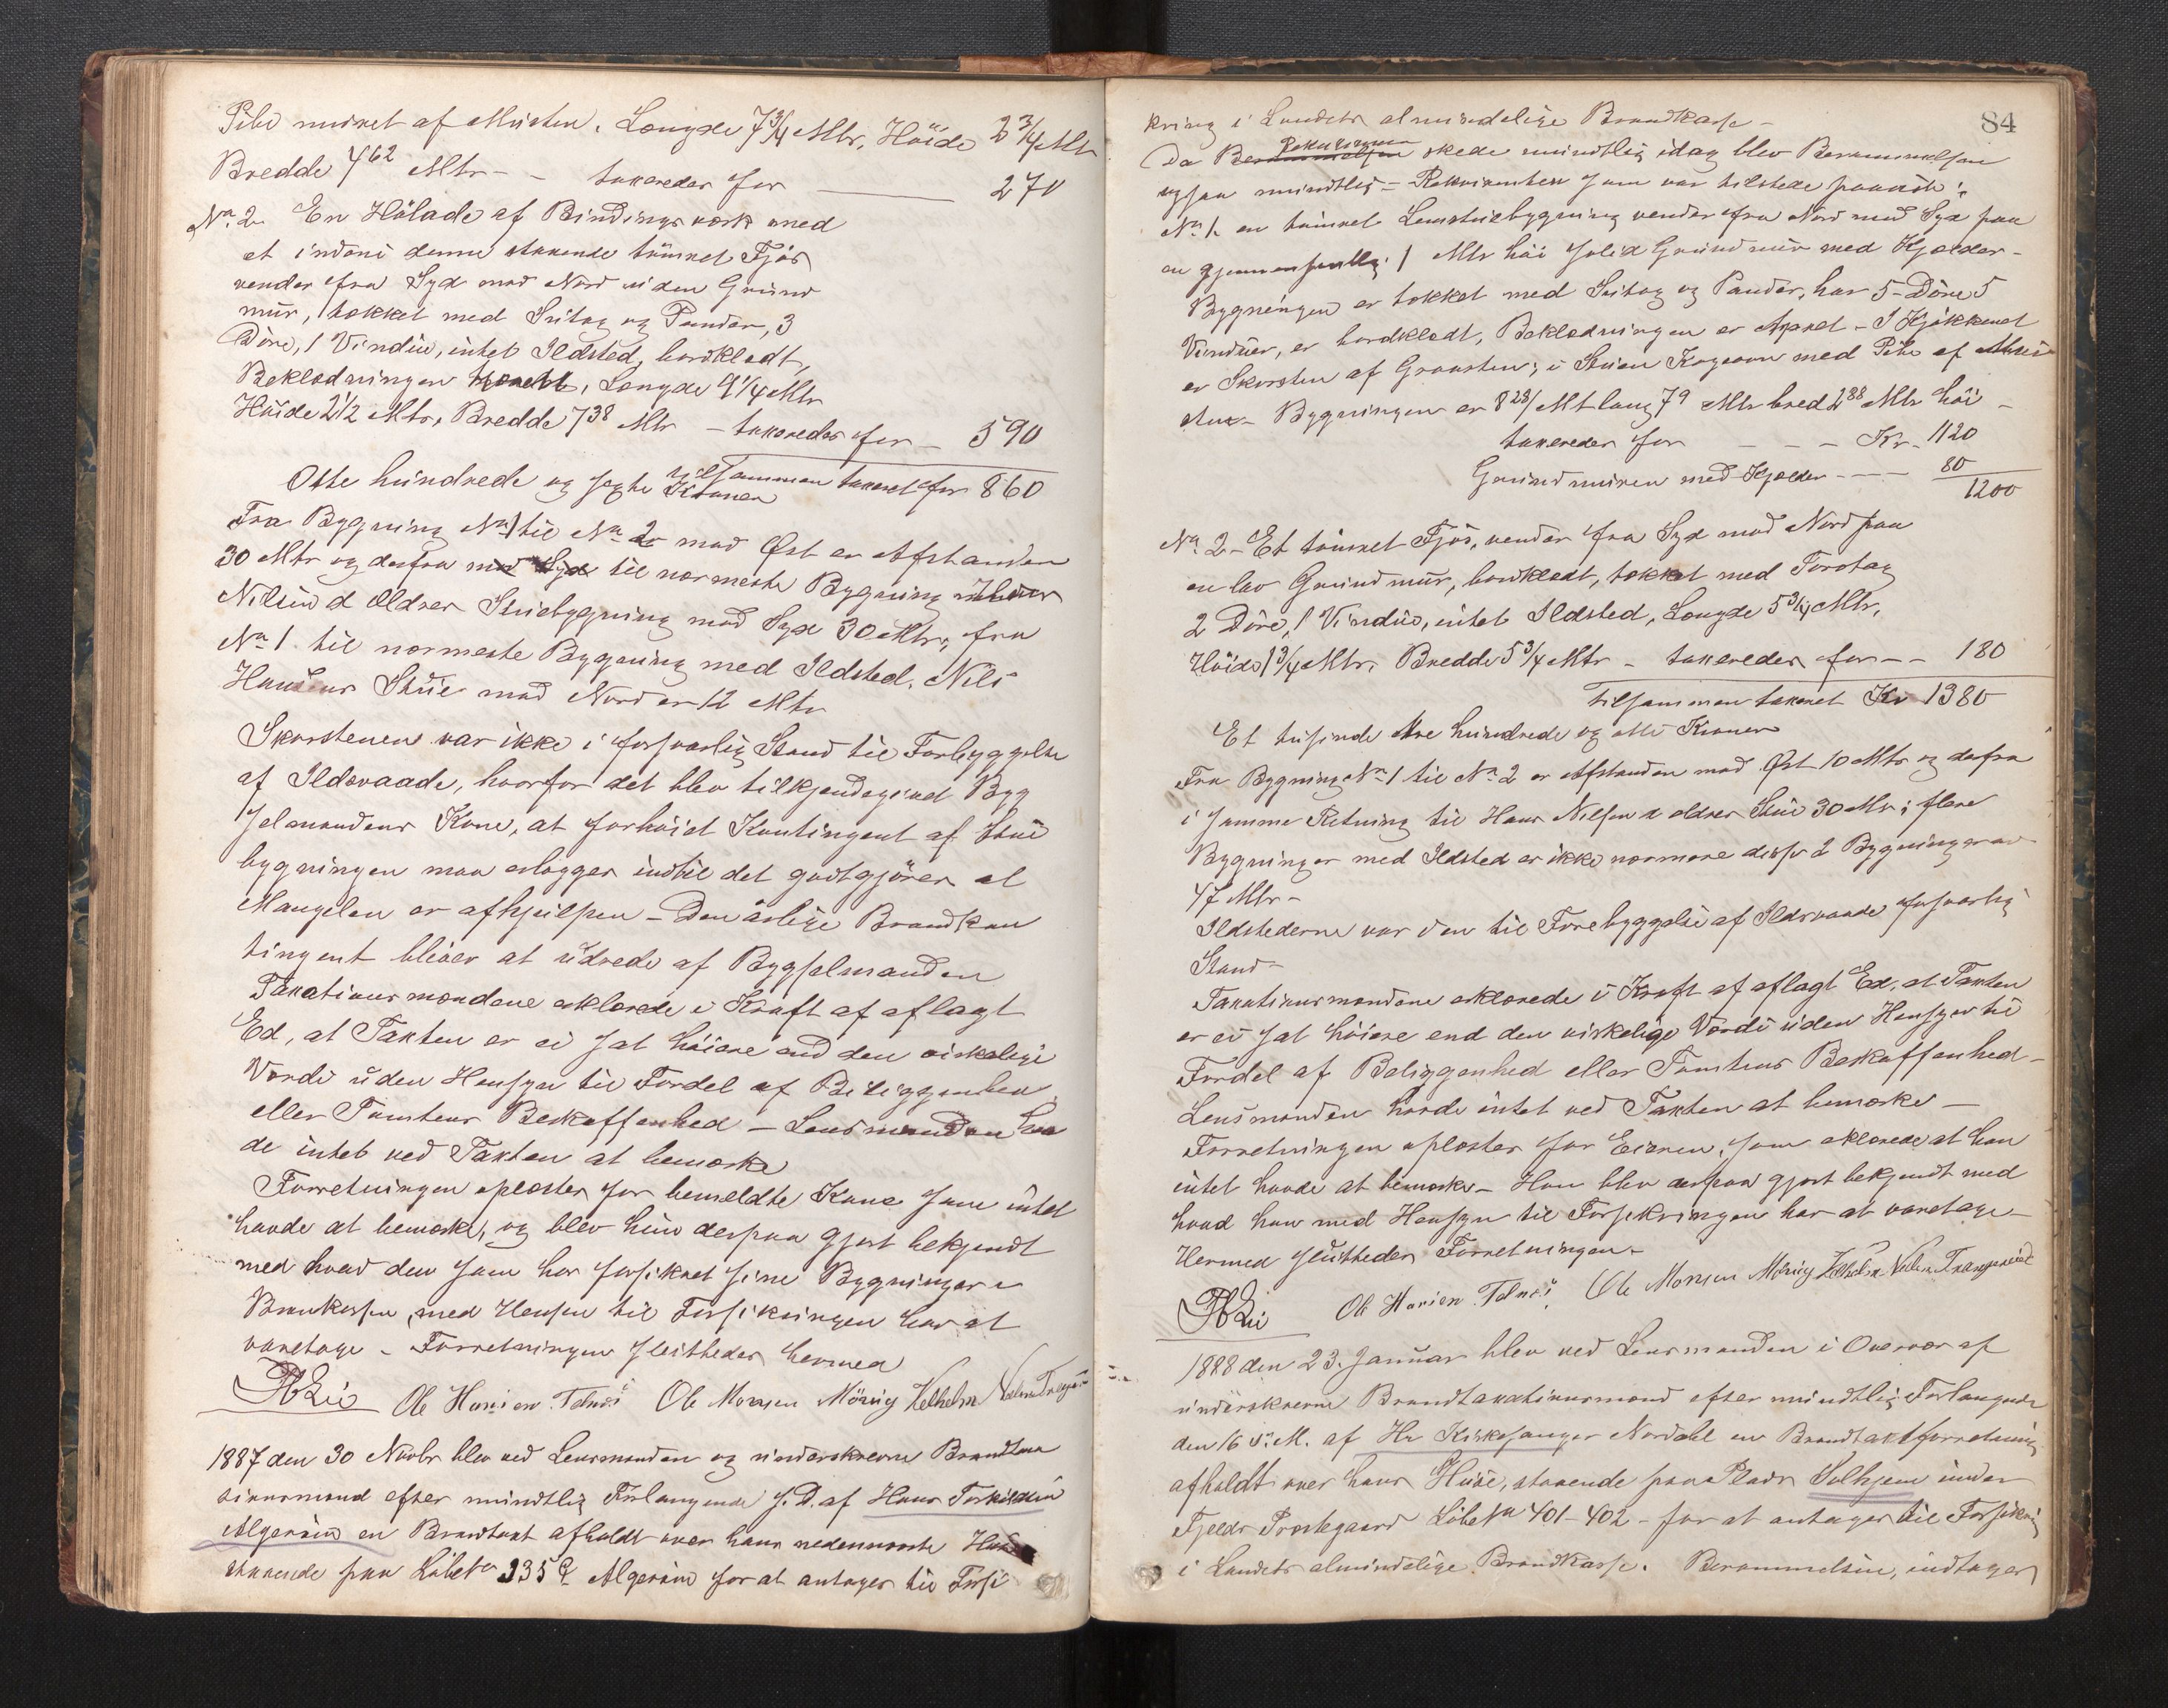 Pibe muret af Mursten. Længde 7 3/4 Mtr, Höide 2 3/4 Mtr
Bredde 4 62 Mtr - - taxeredes for — 270
No 2. En Hölade af Bindingsværk med
et indeni denne staaende tömret Fjös
vender fra Syd mod Nord uden Grund
mur, tækket med Sutag og Pander, 3
Döre, 1 Vindue, intet Ildsted, bordklædt,
Beklædningen, Længde 9 1/4 Mtr
Höide 2 1/2 Mtr, Bredde 7 38 Mtr - taxeredes for - 590
tilsammen taxeret for 860
Otte hundrede og sexti Kroner
Fra Bygning No 1 til No 2 mod Öst er Afstanden
30 Mtr og derfra til nærmeste Bygning
ældres Stuebygning mod Syd 30 Mtr, fra
No 1 til nærmeste Bygning med Ildsted, Nils
Hansens Stue mod Nord er 12 Mtr
Skorstenen var ikke i forsvarlig Stand til Forbyggelse
af Ildsvaade, hvorfor det blev tilkjendegivet Byg
selmandens Kone, at forhöiet Kontingent af Stue
bygningen maa erlægges indtil det godtgjöres at
Mangelen er afhjulpen - Den aarlige Brandkon
tingent bliver at udrede af Bygselmanden
Taxationsmændene erklærede i Kraft af aflagt
Ed, at Taxten er ei sat höiere end den virkelige
Værdi uden Hensyn til Fordel af Beliggenhed
eller Tomtens Beskaffenhed - Lensmanden hav
de intet ved Taxten at bemærke
Forretningen oplæstes for bemeldte Kone som intet
havde at bemærke, og blev hun derpaa gjort bekjendt
med hvad den som har forsikret sine Bygninger i
Brankassen, med Hensyn til Forsikringen har at
varetage - Forretningen sluttedes hermed
Ole Hansen Telnes Ole Monsen Mövig Vilhelm Nilsen
1887 den 30 Novbr blev ved Lensmanden og underskrevne Brandtaxa
tionsmænd efter mundtlig Forlangende s. D. af Hans Torkildsen
Algeröen en Brandtaxt afholdt over hans nedennævnte Huse
staaende paa Löbeno 335 a Algeröen for at antages til Forsi
84
kring i Landets almindelige Brandkasse -
Da skede mundtlig idag blev Berammelsen
ogsaa mundtlig - Rekvirenten som var tilstede paaviste:
No 1. en tömret Lemstuebygning vender fra Nord mod Syd paa
en gjennemsnitlig 1 Mtr höi solid Grundmur med Kjælder -
Bygningen er tækket med Sutag og Pander, har 5 Döre 5
Vinduer, er bordklædt, Beklædningen er - I Kjökkenet
er Skorsten af Graasten; i Stuen Kogeovn med Pibe af Mur
sten - Bygningen er 8 28 Mt lang 7 9 Mtr bred 2 88 Mtr höi -
taxeredes for - - - Kr. 1120
Grundmuren med Kjælder - - - 80
1200
No 2 - Et tömret Fjös, vender fra Syd mod Nord paa
en lav Grundmur, bordklædt, tækket med Torvtag
2 Döre, 1 Vindue, intet Ildsted, Længde 5 3/4 Mtr,
Höide 1 3/4 Mtr. Bredde 5 3/4 Mtr - taxeredes for - - 180
tilsammen taxeret Kr 1380
Et tusinde tre hundrede og otti Kroner
Fra Bygning No 1 til No 2 er Afstanden mod Öst 10 Mtr og derfra
i samme Retning til Hans Nilsen d ældres Stue 30 Mtr; flere
Bygninger med Ildsted er ikke nærmere disse 2 Bygninger end
47 Mtr -
Ildstederne var i den til Forebyggelse af Ildsvaade forsvarlig
Stand -
Taxationsmændene erklærede i Kraft af aflagt Ed, at Taxten
er ei sat höiere end den virkelige Værdi uden Hensyn til
Fordel af Beliggenhed eller Tomtens Beskaffenhed -
Lensmanden havde intet ved Taxten at bemærke -
Forretningen oplæstes for Eieren, som erklærede at han
intet havde at bemærke - Han blev derpaa gjort bekjendt med
hvad han med Hensyn til Forsikringen har at varetage -
Hermed sluttedes Forretningen -
Ole Hansen Telnes Ole Monsen Mövig Vilhelm Nilsen
1888 den 23. Januar blev ved Lensmanden i Overvær af
underskrevne Brandtaxationsmænd efter mundtlig Forlangende
den 16 ds. M. af Hr Kirkesanger Nordahl en Brandtaxtforretning
afholdt over hans Huse, staaende paa Plads Solhjem under
Fjelds Prestegaard Löbeno 401-402 - for at antages til Forsikring
i Landets almindelige Brandkasse. Berammelsen, indtages